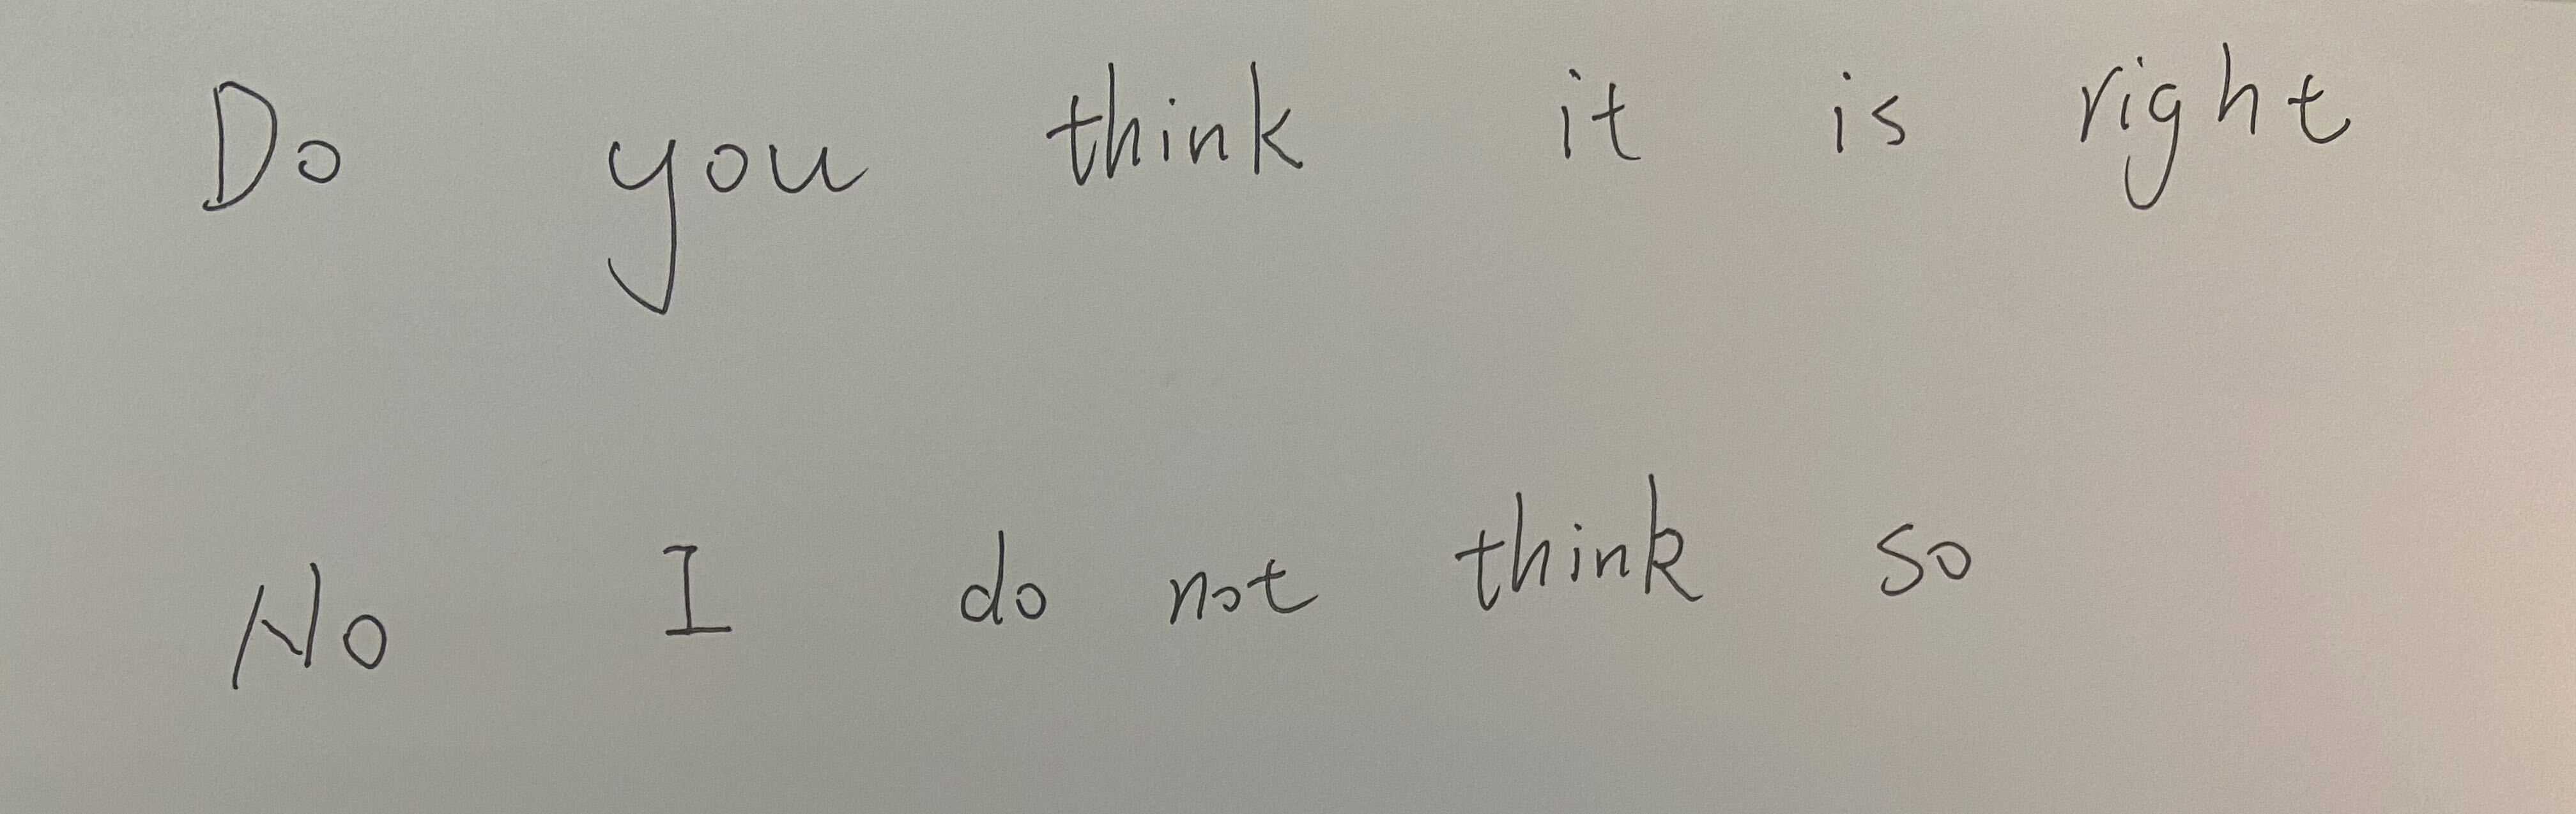 Do you think it is right
No I do not think so